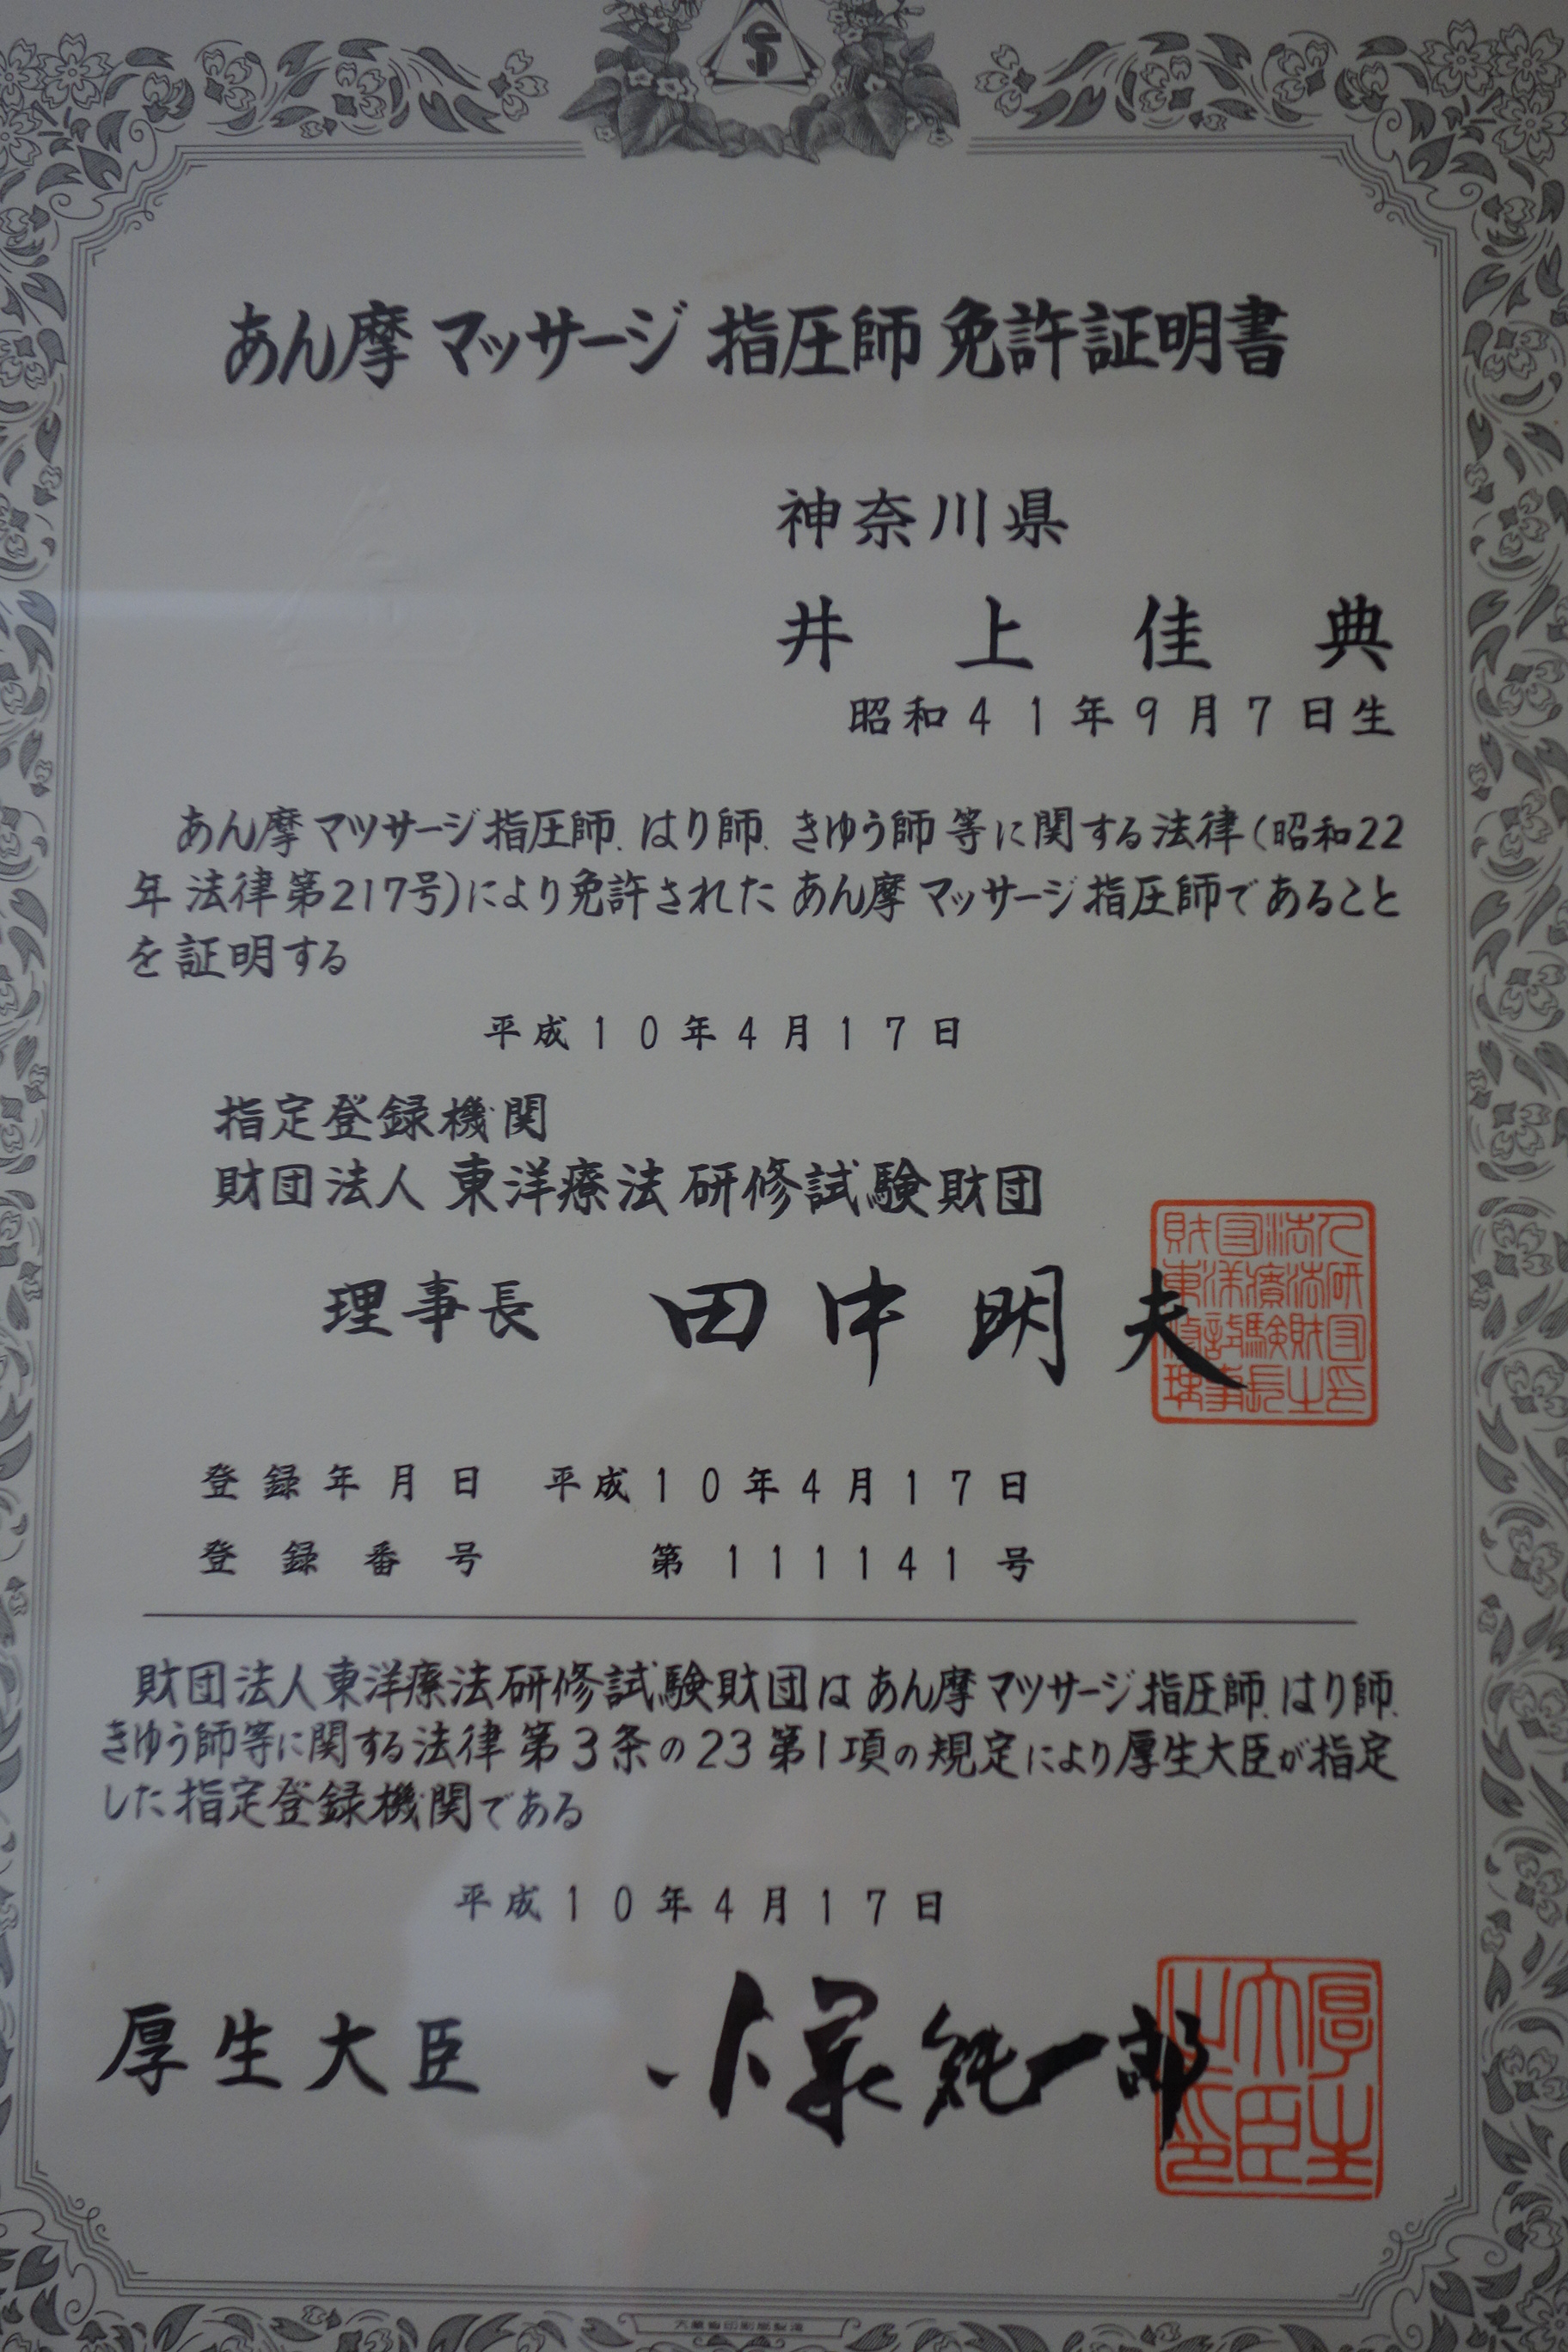 あん摩マッサージ指圧師免許証明書
神奈川県
井上佳典
昭和41年9月7日生
あん摩マツサージ指圧師、はり師、きゆう師等に関する法律(昭和22
年法律第217号)により免許されたあん摩マッサージ指圧師であること
を証明する
平成10年4月17日
指定登録機関
財団法人 東洋療法研修試験財団
理事長 田中明夫
財団法人
東洋療法研
修試験財団
理事長之印
登録年月日 平成10年4月17日
登録番号 第111141号
財団法人東洋療法研修試験財団はあん摩マツサージ指圧師、はり師、
きゆう師等に関する法律第3条の23第1項の規定により厚生大臣が指定
した指定登録機関である
平成10年4月17日
厚生大臣 小泉純一郎
厚生
大臣
之印
大蔵省印刷局製造